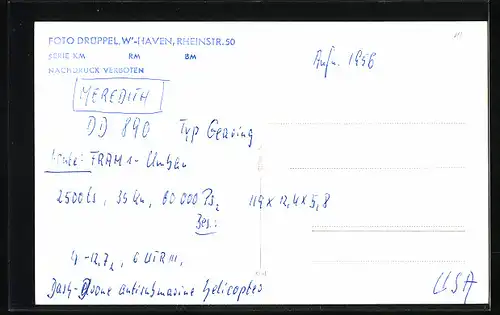 FOTO DRÜPPEL, W'-HAVEN, RHEINSTR. 50
SERIE KM RM BM
NACHDRUCK VERBOTEN
Aufn. 1956
MEREDITH
DD 890 Typ Gearing
FRAM 1-Umbau
2500 ts, 35 kn, 60 000 PS, 119 x 12,4 x 5,8
Bes.:
4-12,7, 6 UTR III,
Dash-Drone antisubmarine helicopter
USA